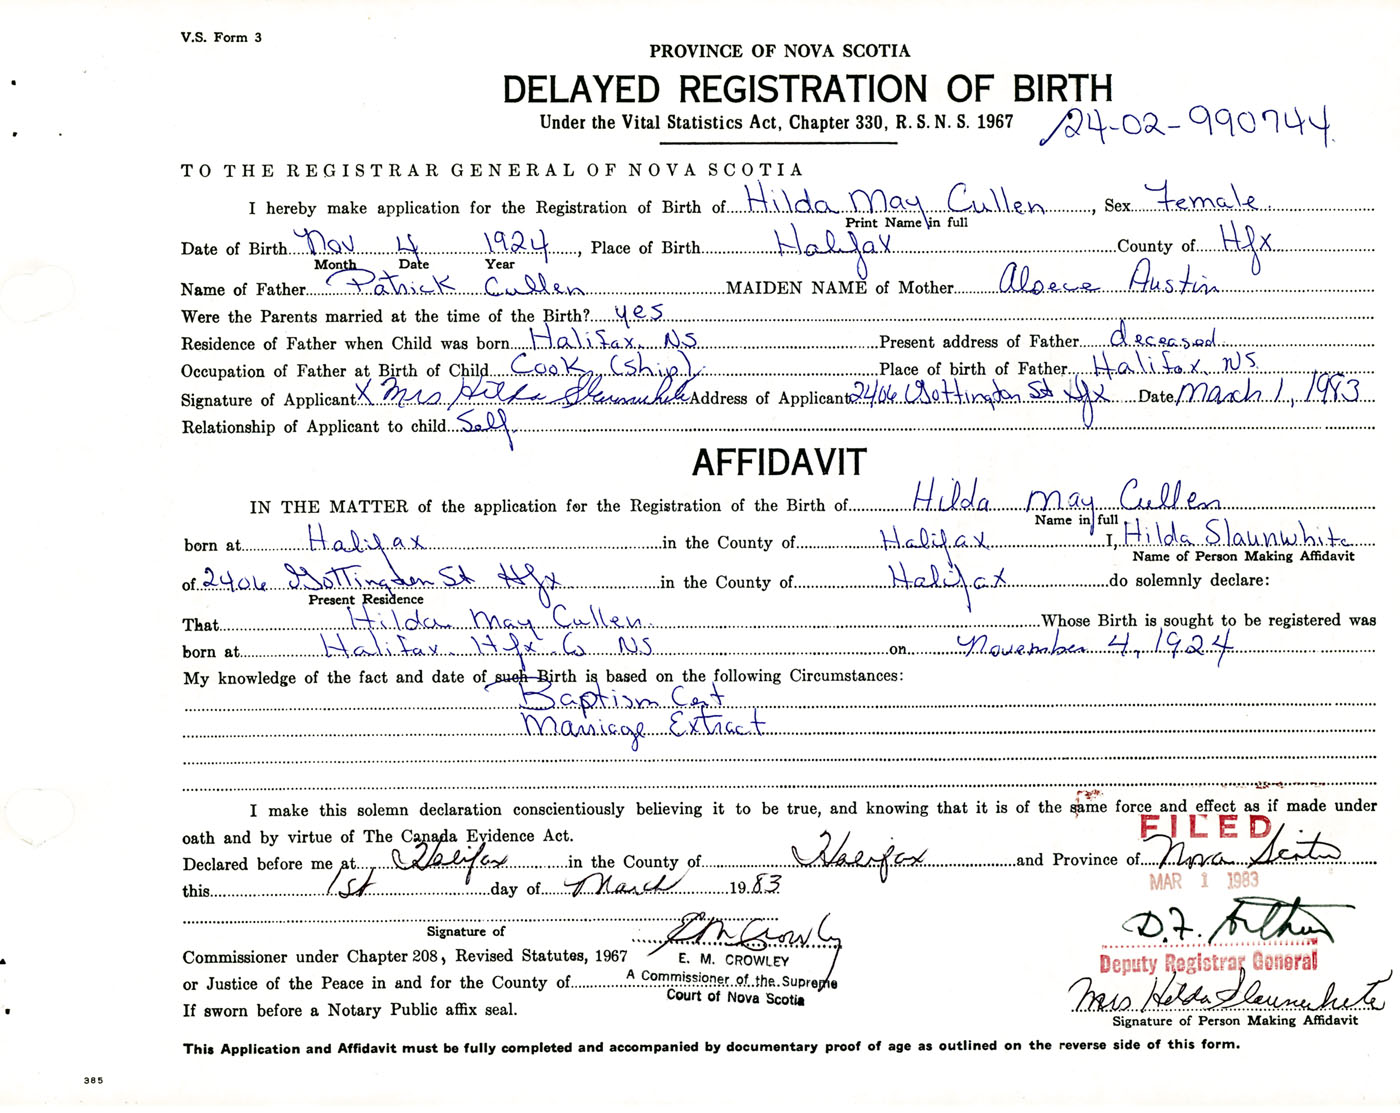 V.S. Form 3
PROVINCE OF NOVA SCOTIA
DELAYED REGISTRATION OF BIRTH
Under the Vital Statistics Act, Chapter 330, R.S.N.S. 1967
24-02-990744
TO THE REGISTRAR GENERAL OF NOVA SCOTIA
I hereby make application for the Registration of Birth of Hilda May Cullen, Sex Female
Print Name in full
Date of Birth Nov 4 1924, Place of Birth Halifax County of Hfx
Month Date Year
Name of Father Patrick Cullen MAIDEN NAME of Mother Austin
Were the Parents married at the time of the Birth? yes
Residence of Father when Child was born Halifax NS Present address of Father deceased
Occupation of Father at Birth of Child Cook (Ship) Place of birth of Father Halifax NS
Signature of Applicant X Mrs Hilda Slaunwhite Address of Applicant 2406 Gottingdon St Hfx Date March 1, 1983
Relationship of Applicant to child Self
AFFIDAVIT
IN THE MATTER of the application for the Registration of the Birth of Hilda May Cullen
Name in full
born at Halifax in the County of Halifax I, Hilda Slaunwhite
Name of Person Making Affidavit
of 2406 Gottingdon St Hfx in the County of Halifax do solemnly declare:
Present Residence
That Hilda May Cullen Whose Birth is sought to be registered was
born at Halifax Hfx Co NS on November 4, 1924
My knowledge of the fact and date of such Birth is based on the following Circumstances:
Baptism Cert
Marriage Extract
I make this solemn declaration conscientiously believing it to be true, and knowing that it is of the same force and effect as if made under
oath and by virtue of The Canada Evidence Act.
FILED
Declared before me at Halifax in the County of Halifax and Province of Nova Scotia
this 1st day of March 1983
MAR 1 1983
Signature of
E M Crowley
D.F. Arthur
Commissioner under Chapter 208, Revised Statutes, 1967
E. M. CROWLEY
Deputy Registrar General
or Justice of the Peace in and for the County of
A Commissioner of the Supreme
Court of Nova Scotia
Mrs Hilda Slaunwhite
If sworn before a Notary Public affix seal.
Signature of Person Making Affidavit
This Application and Affidavit must be fully completed and accompanied by documentary proof of age as outlined on the reverse side of this form.
385